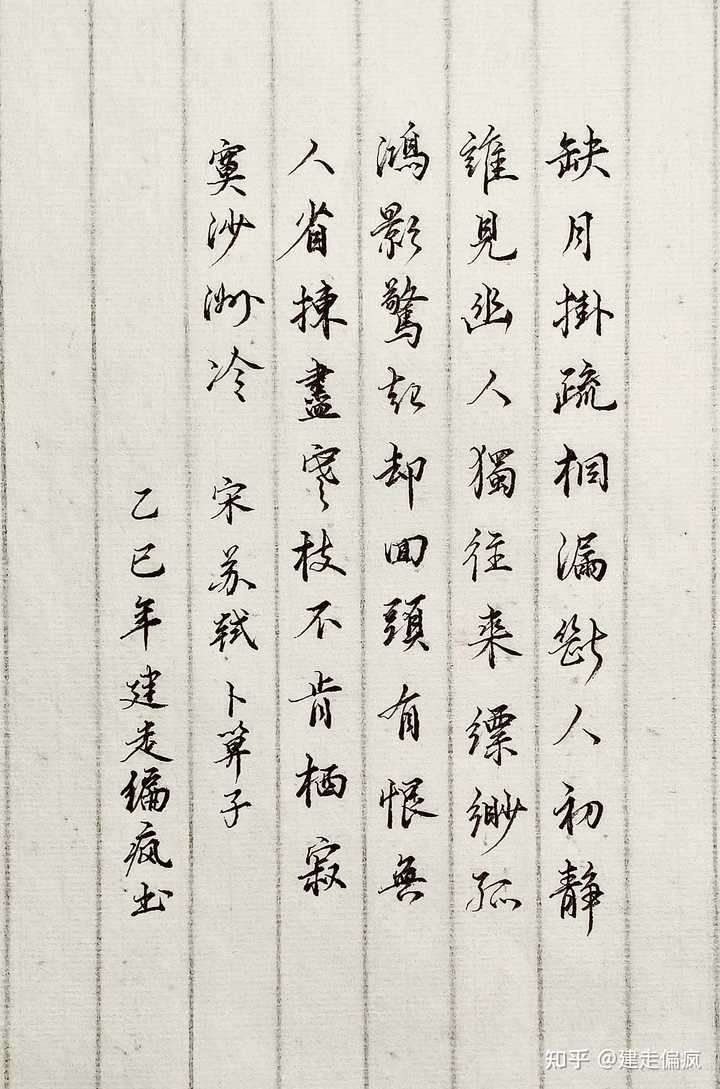 缺月掛疏桐漏斷人初静
誰見幽人獨往来缥缈孤
鴻影驚起却回頭有恨無
人省揀盡寒枝不肯栖寂
寞沙洲冷 宋苏轼卜算子
乙巳年建走偏疯书
知乎 @建走偏疯